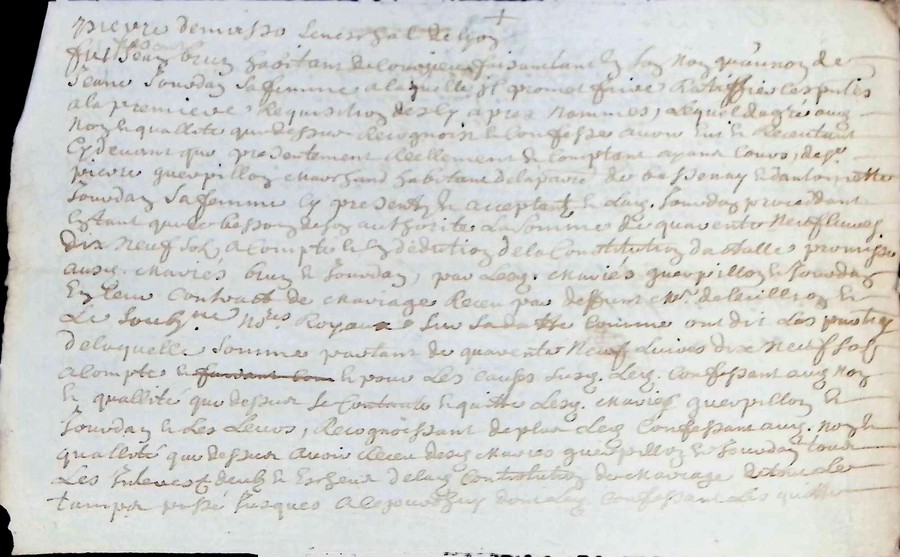 pierre demasso seneschal de lyon
fut Jean brun habitant de faisant tant en son nom qu'au nom de
Jeanne Jourdan sa femme a laquelle il promet faire Ratiffier ces pntes
a la premiere Requisition des cy apres nommes, lequel de gré aux
noms et quallité que dessus Recognoist et Confesse avoir eu et Receu tant
Cy devant que presentement Reellement et Comptant ayant Cours, de sr
pierre guerpillon marchand habitant de la parr. de bessenay et dantoinette
Jourdan sa femme Cy presents et acceptants et lad. Jourdan procedant
Estant que de besoin de son authorite La somme de quarante neuf livres
dix neuf sols, a Compte et En dedution de la Constitution dotalle promise
ausd. mariés brun et Jourdan, par Lesd. mariés guerpillon et Jourdan
En leur Contract de mariage Receu par deffunt me. et
Le soubne nores Royaux Sur sa datte Comme ont dit Les parties
de laquelle somme partant de quarante neuf Livres dix neuf sols
a Compte et et pour Les causes susd. Led. Confessant aux noms
et quallité que dessus se Contante et quitte Lesd. mariés guerpillon et
Jourdan et Les Leurs, Recognoissant de plus Led. Confessant aud. nom et
quallité que dessus avoir Receu desd. mariés guerpillon et Jourdan tous
Les Interests deubs et Escheus de lad. Constitution de mariage de tout le
temps passé Jusques a ce jourdhuy dont led. Confessant Les quitte